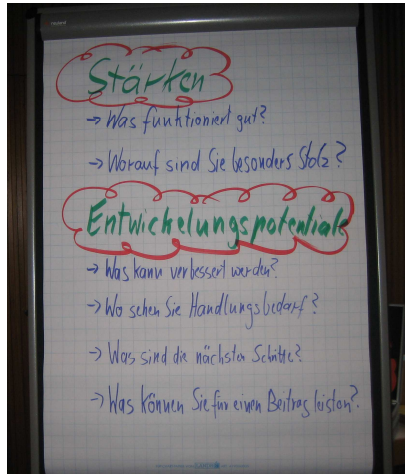 Stärken
→ Was funktioniert gut?
→ Worauf sind Sie besonders Stolz?
Entwickelungspotentiale
→ Was kann verbessert werden?
→ Wo sehen Sie Handlungsbedarf?
→ Was sind die nächsten Schritte?
→ Was können Sie für einen Beitrag leisten?